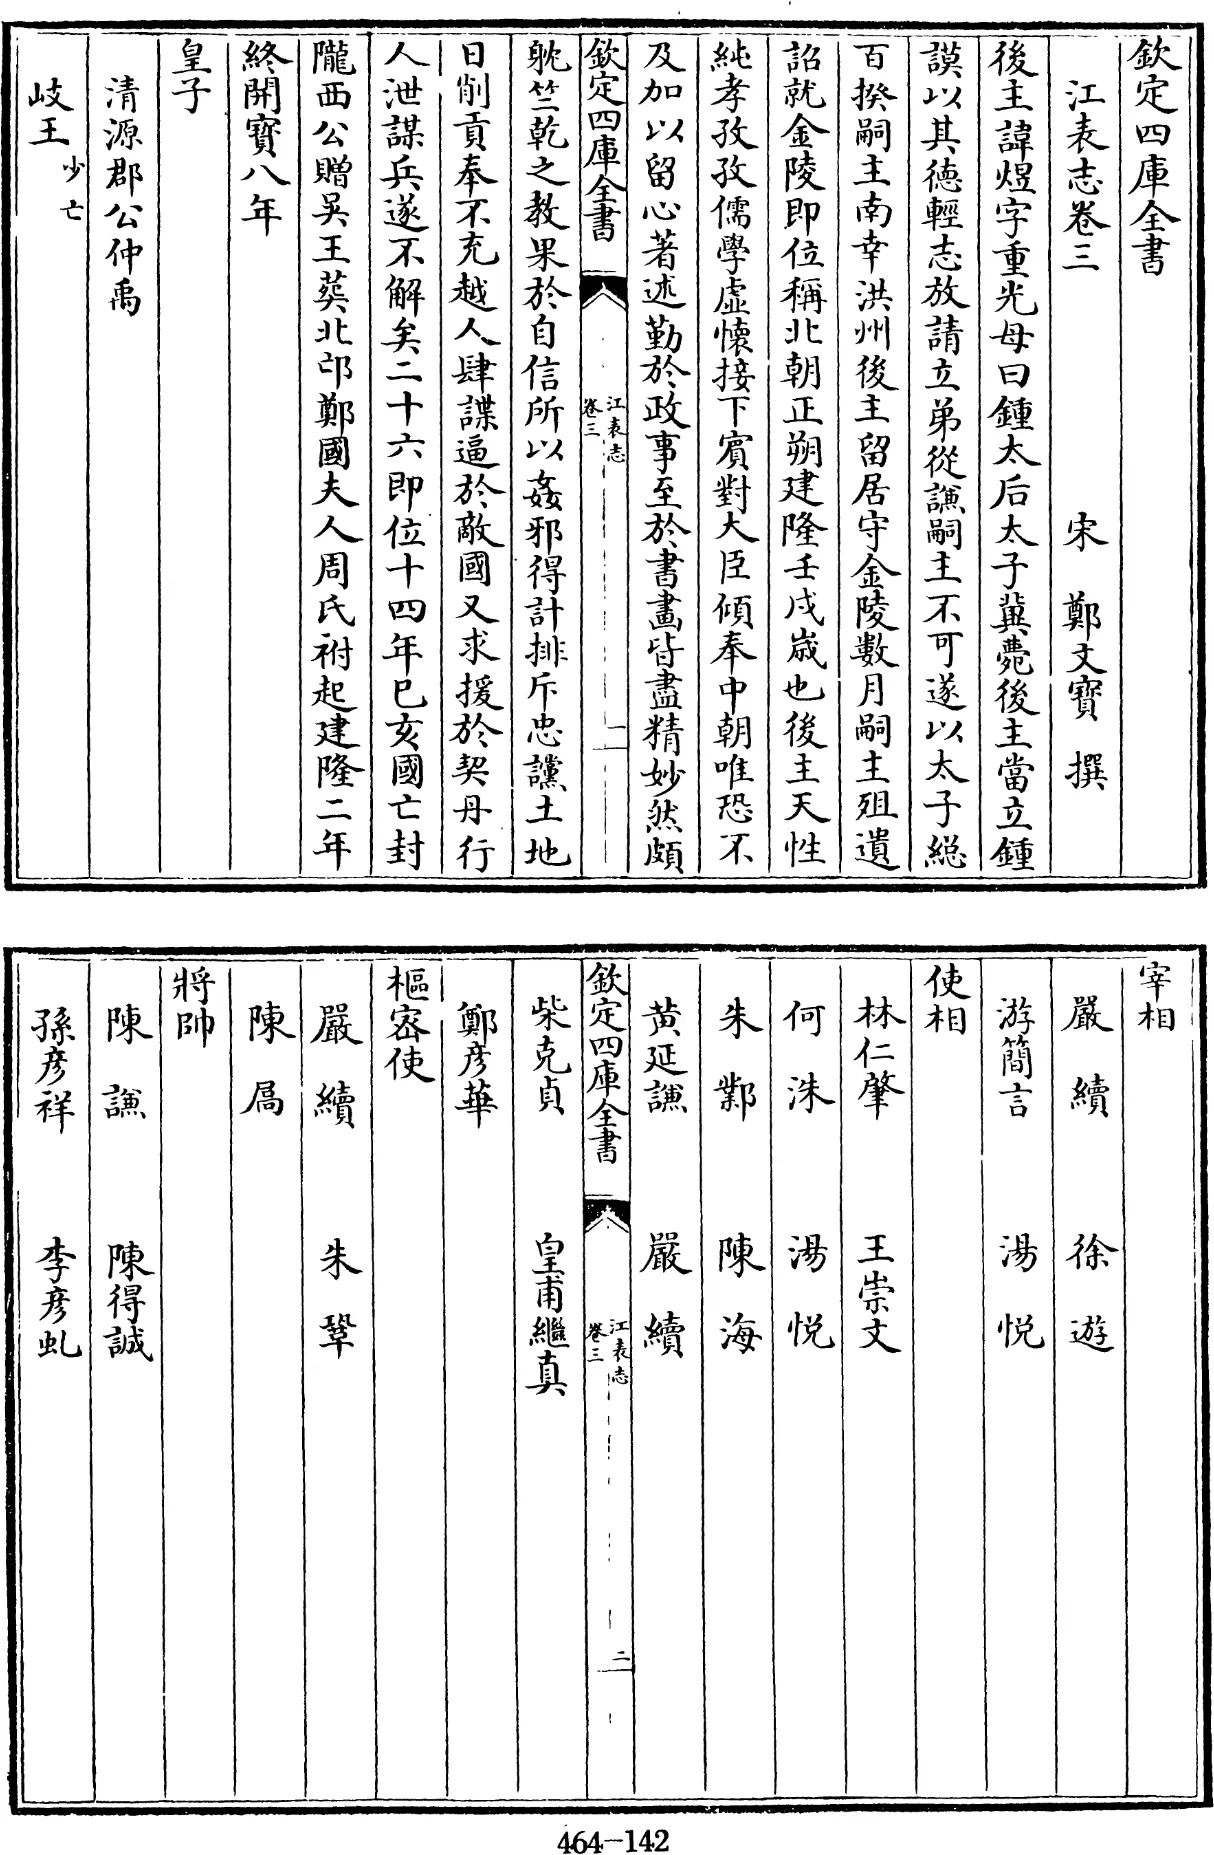 欽定四庫全書
江表志卷三 宋 鄭文寶 撰
後主諱煜字重光母曰鍾太后太子冀薨後主當立鍾
謨以其德輕志放請立弟從謙嗣主不可遂以太子總
百揆嗣主南幸洪州後主留居守金陵數月嗣主殂遺
詔就金陵即位稱北朝正朔建隆壬戌嵗也後主天性
純孝孜孜儒學虛懷接下賔對大臣傾奉中朝唯恐不
及加以留心著述勤於政事至於書畫皆盡精妙然頗
欽定四庫全書 江表志 卷三 一
躭竺乾之教果於自信所以姦邪得計排斥忠讜土地
日削貢奉不充越人肆謀逼於敵國又求援於契丹行
人泄謀兵遂不解矣二十六即位十四年已亥國亡封
隴西公贈吴王葬北邙鄭國夫人周氏祔起建隆二年
終開寶八年
皇子
清源郡公仲禹
岐王 少亡
宰相
嚴續 徐遊
游簡言 湯悦
使相
林仁肇 王崇文
何洙 湯悦
朱鄴 陳海
黄延謙 嚴續
欽定四庫全書 江表志 卷三 二
柴克貞 皇甫繼真
鄭彦華
樞宻使
嚴續 朱鞏
陳
將帥
陳謙 陳得誠
孫彦祥 李彦虬
464-142